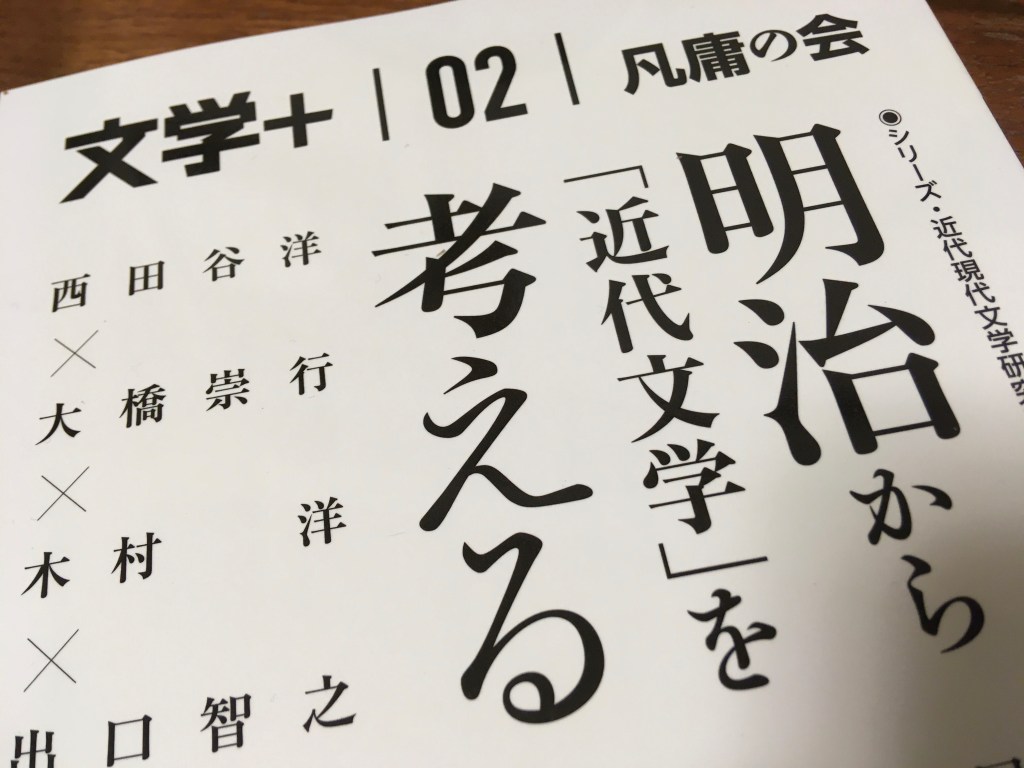 文学+｜02｜凡庸の会
◉シリーズ・近代現代文学研究
明治から
「近代文学」を
考える
西田谷洋
×
大橋崇行
×
木村洋
×
出口智之